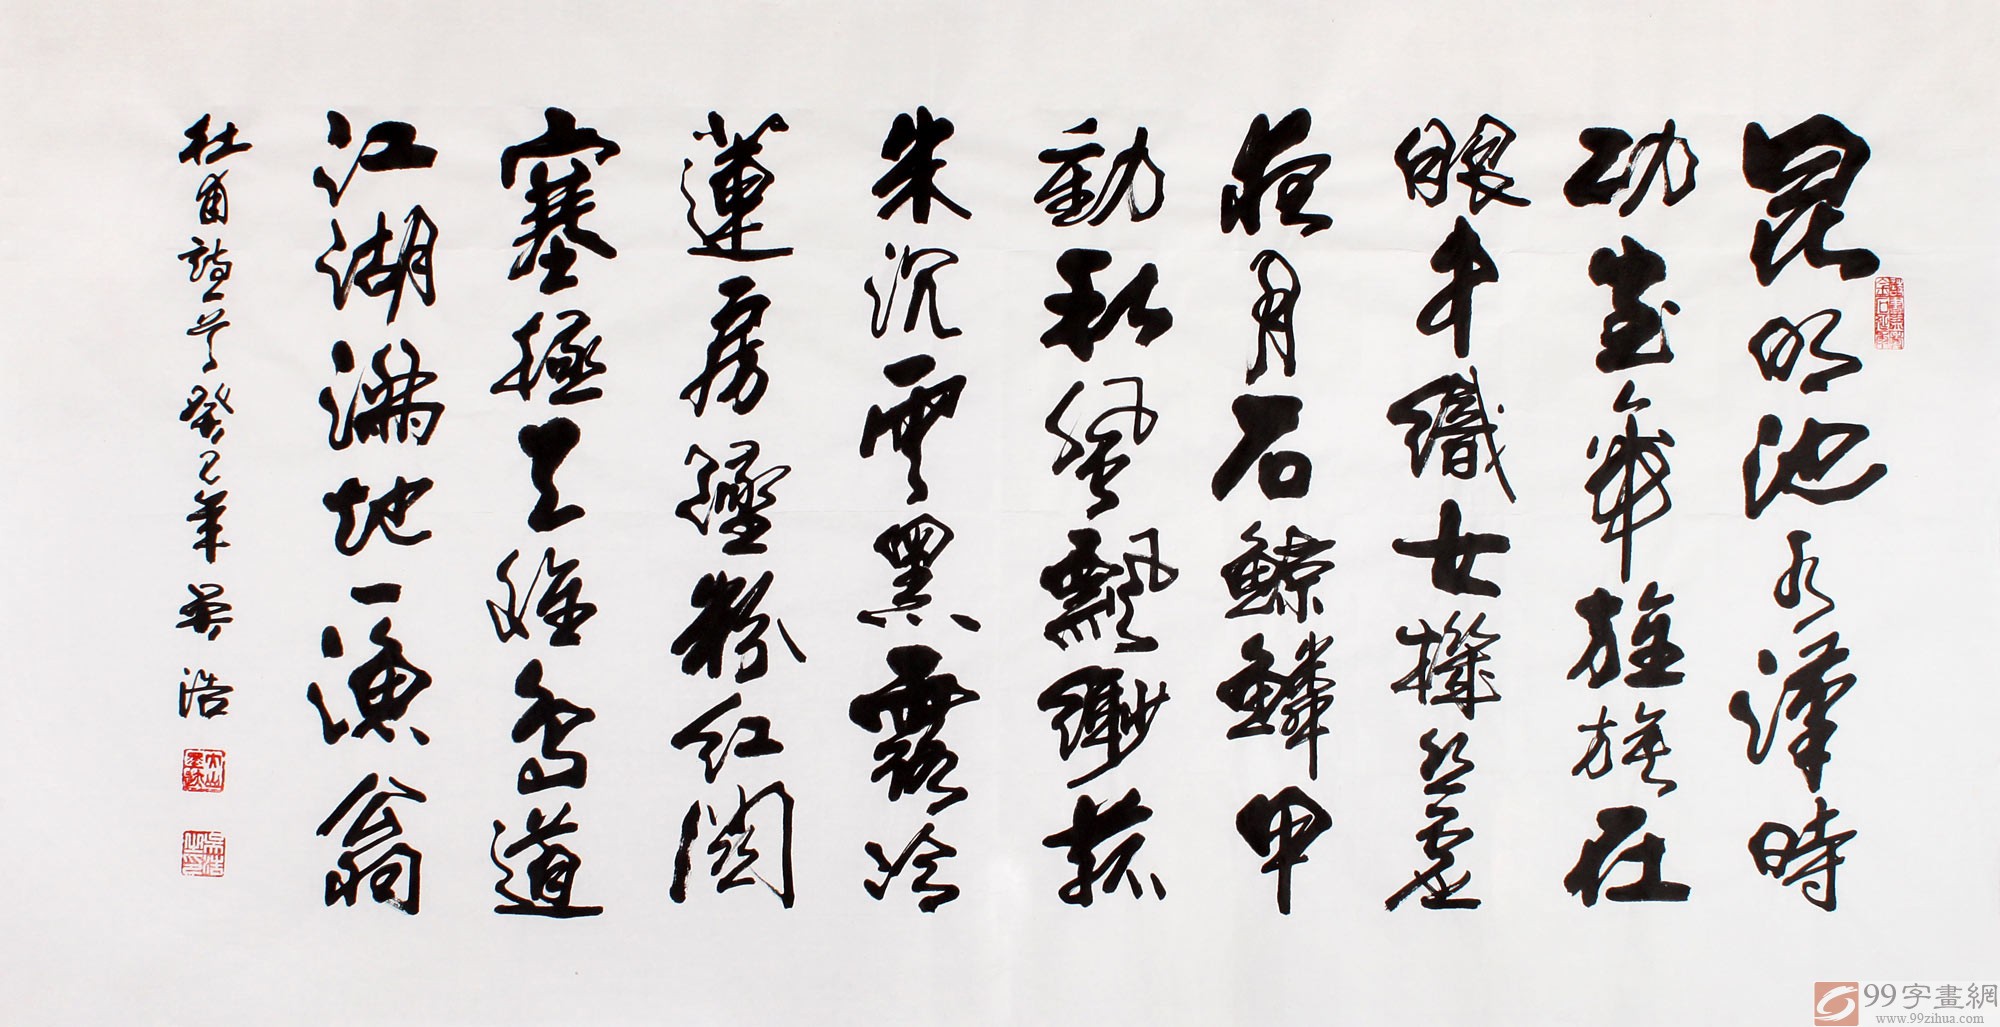 昆明池水漢時
功武帝旌旗在
眼中織女機絲虛
夜月石鯨鱗甲
動秋風飄緲菰
米沉雲黑露冷
蓮房墜粉紅關
塞極天惟鳥道
江湖滿地一漁翁
杜甫詩一首癸巳年吳浩
吳浩之印
99字畫網
www.99zihua.com